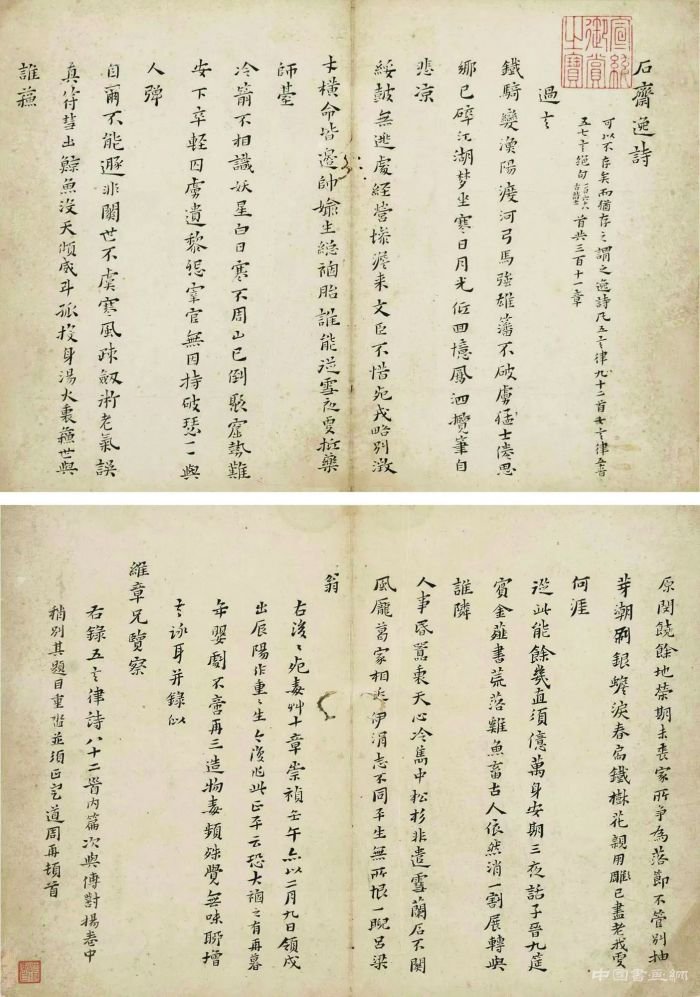 石齋逸詩
可以不存矣而猶存之謂之逸詩凡五言律九十二首七言律五首
五七言絕句首共三百十一章
過之
鐵騎孌漁陽渡河弓馬強雄藩不破虜猛士倦思
鄉已碎江湖夢坐寒日月光低回憶鳳泗攬筆自
悲涼
綏鼓無逃處經營慘澹來文臣不惜死戎略別激
才橫命皆邊帥媮生總禍胎誰能從雪夜更扺藥
師臺
冷箭不相識妖星白日寒不周山已倒聚窟勢難
安下卒輕囚虜遺黎怨宰官無因持破瑟一一與
人彈
自爾不能遯非關世不虞寒風疎劒術老氣誤
真符彗出鯨魚沒天傾咸斗孤投身湯火裏蘓世與
誰蘓
原関饒餘地榮期未喪家所爭為落節不管別抽
芽潮刷銀蟾淚春扃鐵樹花親用雕已盡老我更
何涯
從此能餘幾直須億萬身安期三夜話子晉九筵
賓金薤書荒落雞魚畜古人依然消一割展轉與
誰隣
人事長囂裏天心冷雋中松杉非遣雪蘭石不關
風龐葛家相近伊涓志不同平生無所恨一睨呂梁
翁
右後死毒艸十章崇禎壬午亦以二月九日領戍
出辰陽作重生今後此正平云恐大禍之有再暮
年嬰劇不啻再三造物毒頻殊覺無味聊增
言詠耳并錄似
維章兄覽察
右錄五言律詩八十二首內篇次與傳對揚卷中
稍別其題目重沓並須正定道周再頓首
宣統御賞之寶
中国書画網